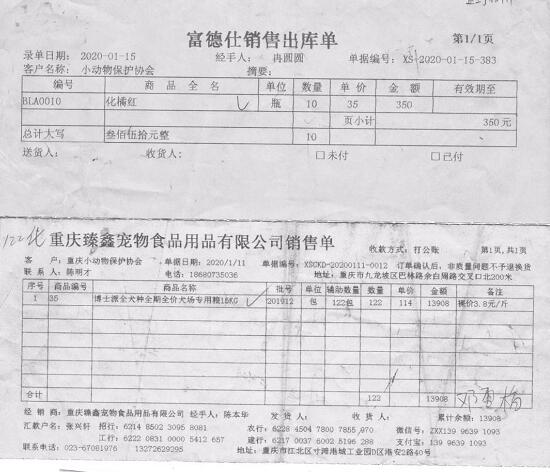 富德仕销售出库单
第1/1页
录单日期: 2020-01-15 经手人: 冉圆圆 单据编号: XS-2020-01-15-383
客户名称: 小动物保护协会 摘要:
编号 商品全名 单位 数量 单价 金额 有效期至
BLA0010 化橘红 瓶 10 35 350
页小计 350元
总计大写 叁佰伍拾元整 10
送货人: 收货人: □未付 □已付
122包 重庆臻鑫宠物食品用品有限公司销售单 收款方式: 打公账 第1页,共1页
客 户: 重庆小动物保护协会 单据日期: 2020/1/11 单据编号: XSCKD-20200111-0012 订单确认后,非质量问题不予退换货
联系人: 陈明才 电话: 18680735036 地址: 重庆市九龙坡区巴林路余白周路交叉口北200米
序号 商品编号 商品名称 批号 单位 辅助数量 数量 单价 金额 备注
1 35 博士派全犬种全期全价犬场专用粮15KG 201912 包 122包 122 114 13908 裸价3.8元/斤
合计 122 13908
经 销 商: 重庆臻鑫宠物食品用品有限公司 经手人: 陈本华 发 货 人: 收 货 人: 累计余额: 13908
汇款户名: 张兴轩 招行: 6214 8502 3095 8081 农行: 6228 4504 7800 7855 970 微信号: ZXX139 9639 1093
工行: 6222 0831 0000 5412 657 建行: 6217 0037 6002 5485 219 支付宝: 139 9639 1093
联系电话: 023-67081976 13272629295 地址: 重庆市江北区寸滩港城工业园D区港安2路40号